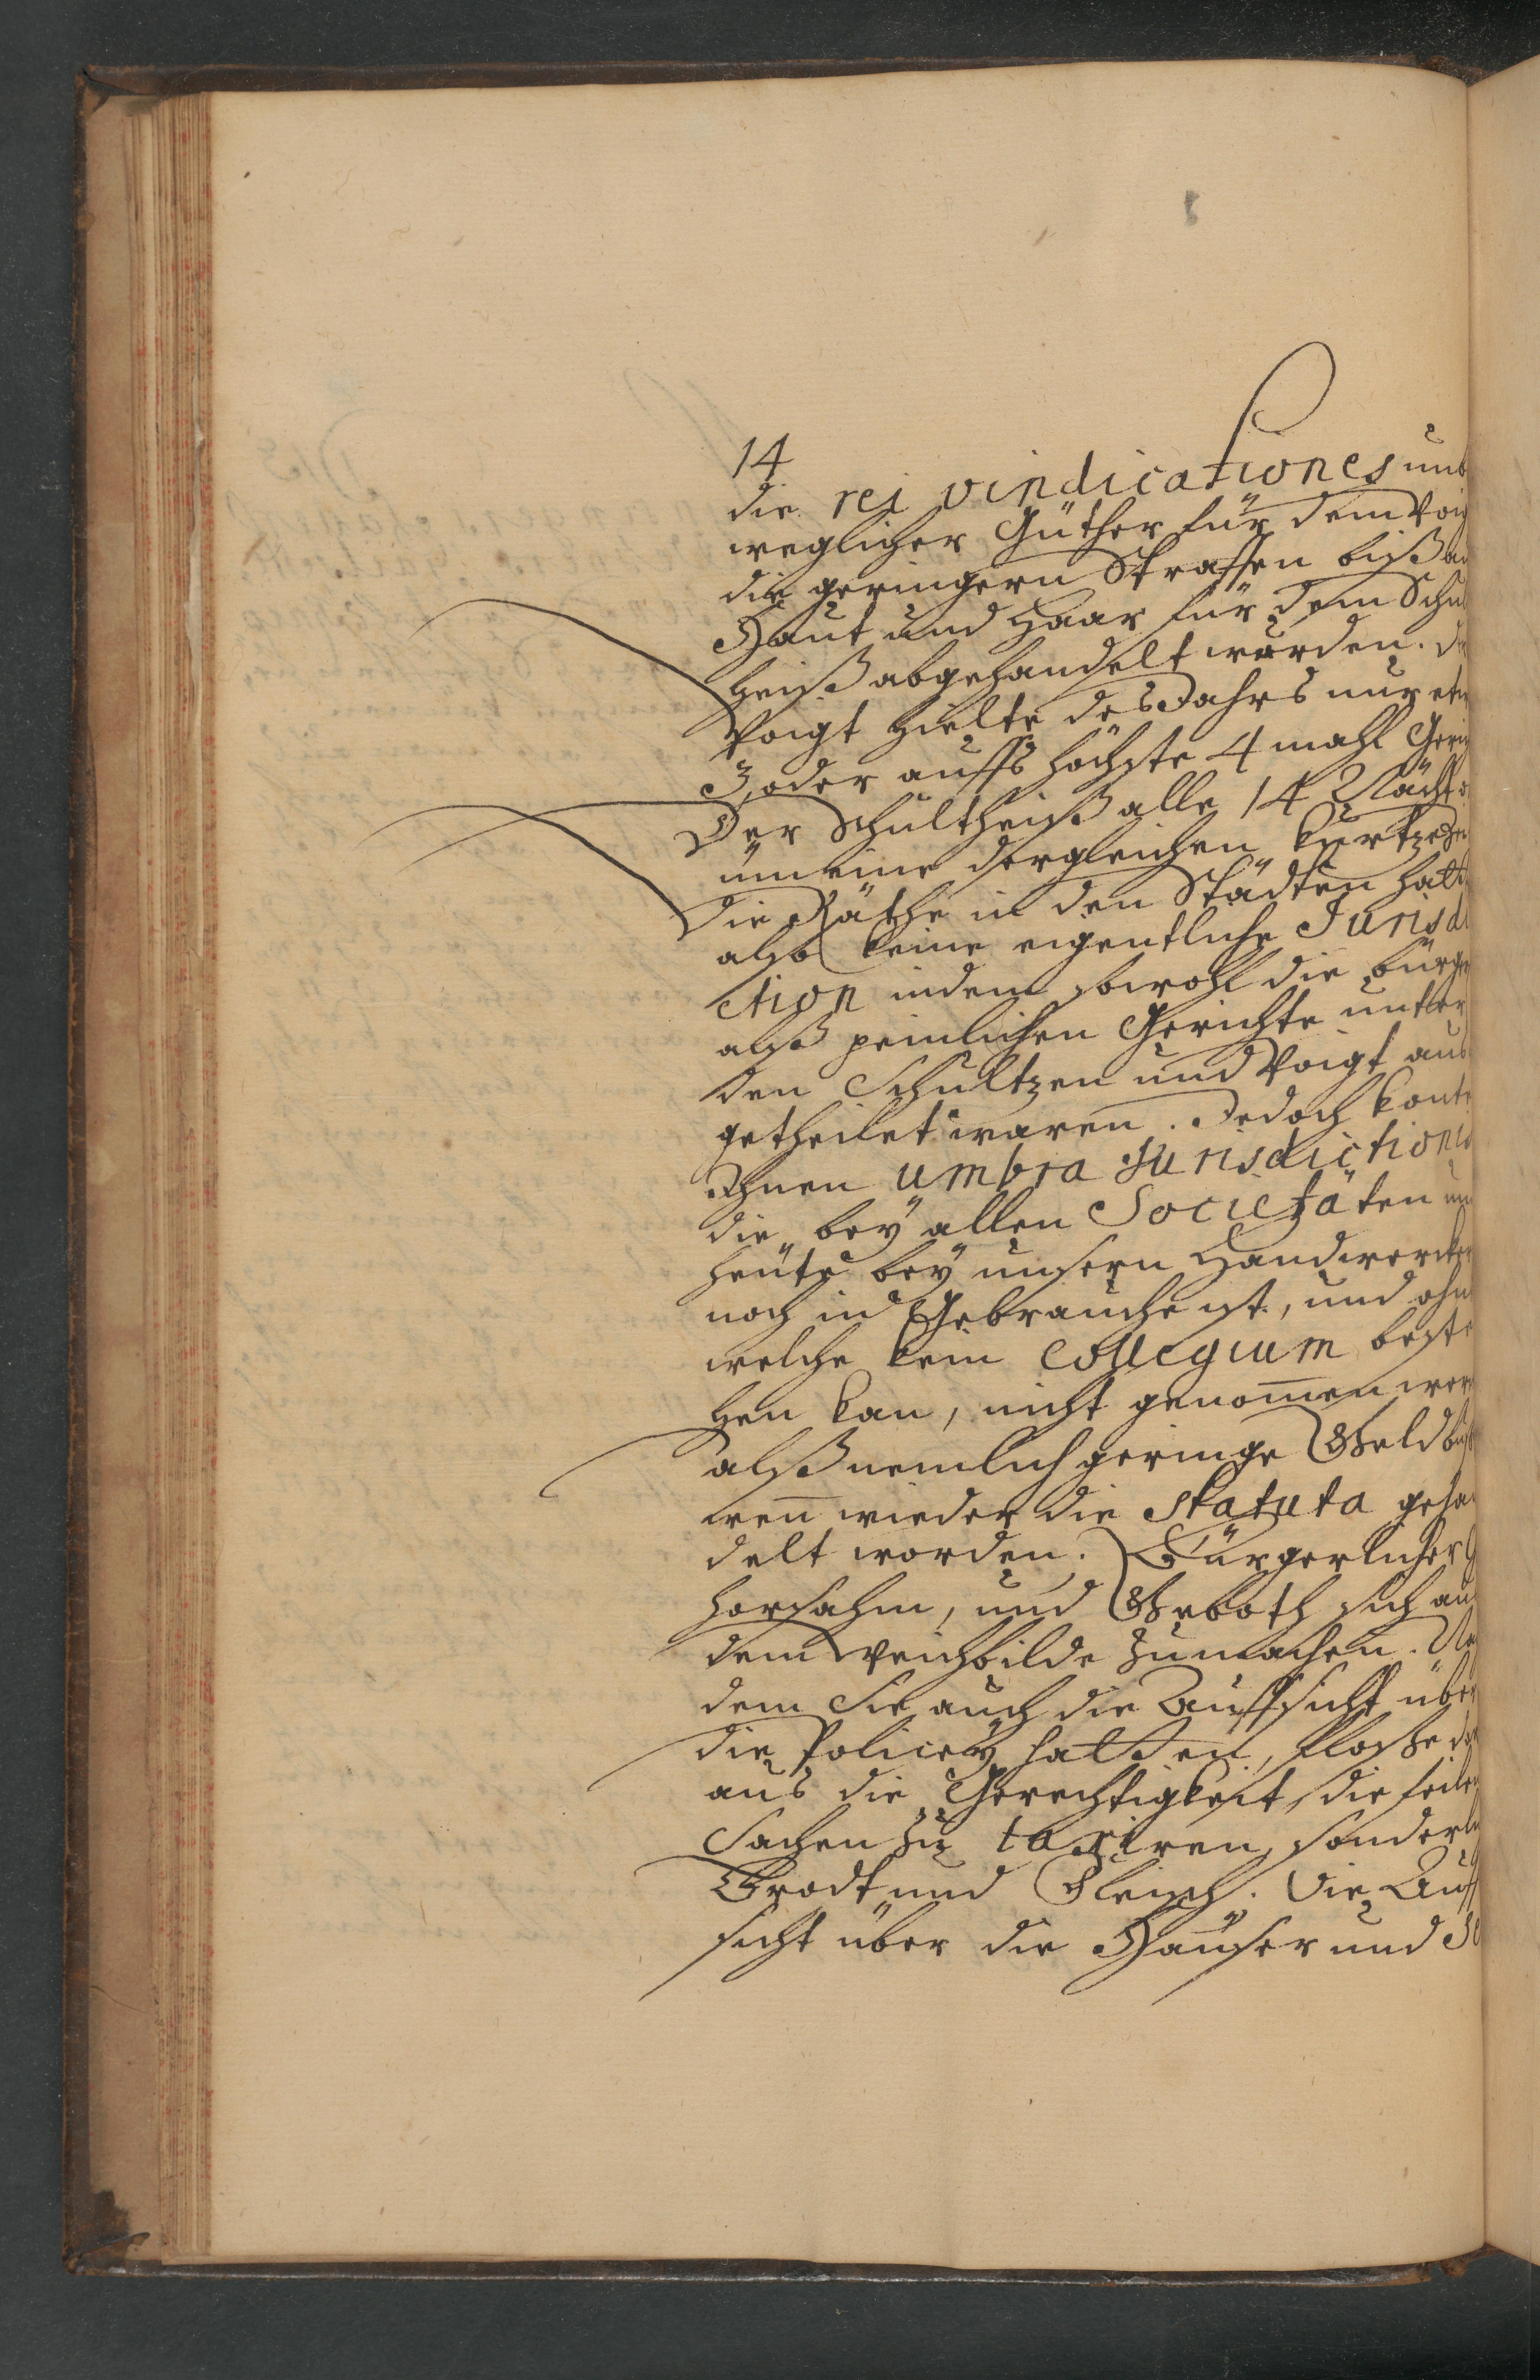 14
die rei vindicationes unb
weglicher Güther für dem Voig
die geringern Straffen biß an
Haut und Haar für dem Schul
heiß abgehandelt wurden. De
Voigt hielte des Jahrs nur etw
3, oder auffs höchste 4 mahl Geric
Der Schultheiß alle 14 Nächte
üm eine dergleichen
Die Räthe in den Städten hatte
also keine eigentliche Jurisdi
ction indem sowohl die bürger
alß peinlichen Gerichte unter
den Schultzen und Voigt aus
getheilet waren. Jedoch konte
Ihnen umbra Jurisdictionis
die bey allen Societäten un
heute bey unsern Handwercker
noch in Gebrauche ist, und ohn
welche kein Collegium beste
hen kan, nicht genom̅en wer
alß nemlich geringe Geldbuß
wen̅ wieder die Statuta gehan
delt worden. Bürgerlicher G
horsahm, und Geboth sich aus
dem Weichbilde zumachen. Na
dem Sie auch die Auffsicht über
die Policey hatten, flosse dar
aus die Gerechtigkeit, die feilen
Sachen zu taxiren, sonderli
Brodt und Fleisch. Die Auff
sicht über die Häuser und